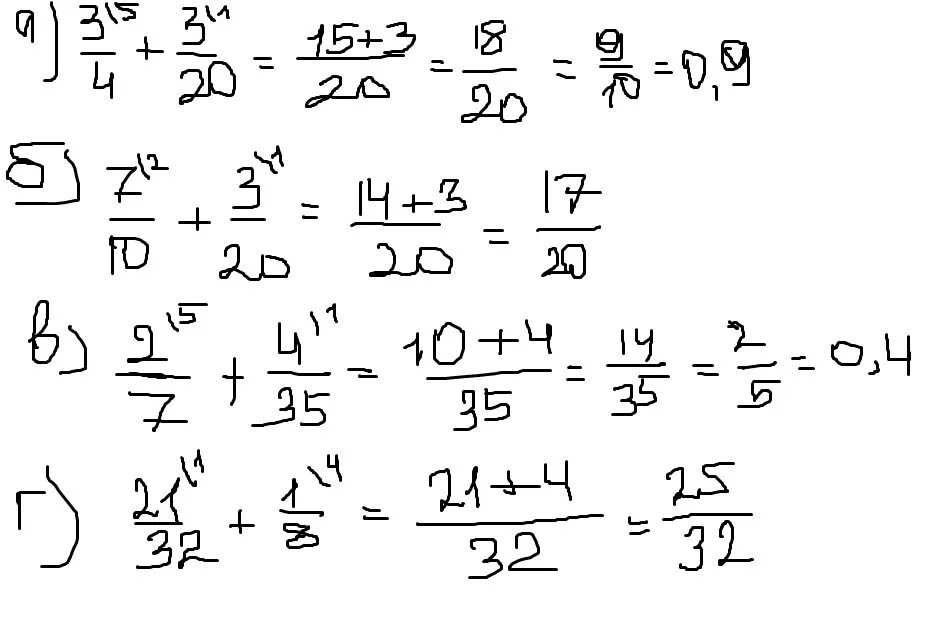 а) 3\5/4 + 3\1/20 = 15+3/20 = 18/20 = 9/10 = 0,9
б) 7\2/10 + 3\1/20 = 14+3/20 = 17/20
в) 2\5/7 + 4\1/35 = 10+4/35 = 14/35 = 2/5 = 0,4
г) 21\1/32 + 1\4/8 = 21+4/32 = 25/32